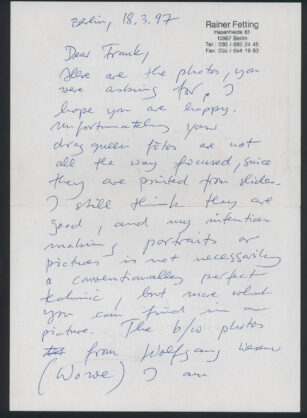 Rainer Fetting
Hasenheide 61
10967 Berlin
Tel.: 030 / 692 24 45
Fax: 030 / 694 19 63
Berlin, 18.3.97
Dear Frank,
Here are the photos, you
were asking for, I
hope you are happy.
Unfortunately your
drag queen fotos are not
all the way focused, since
they are printed from slides.
I still think they are
good, and my intention
making portraits or
pictures is not necessarily
a conventionally perfect
technic, but more what
you can find in a
picture. The b/w photos
from Wolfgang
(Wowe) I am